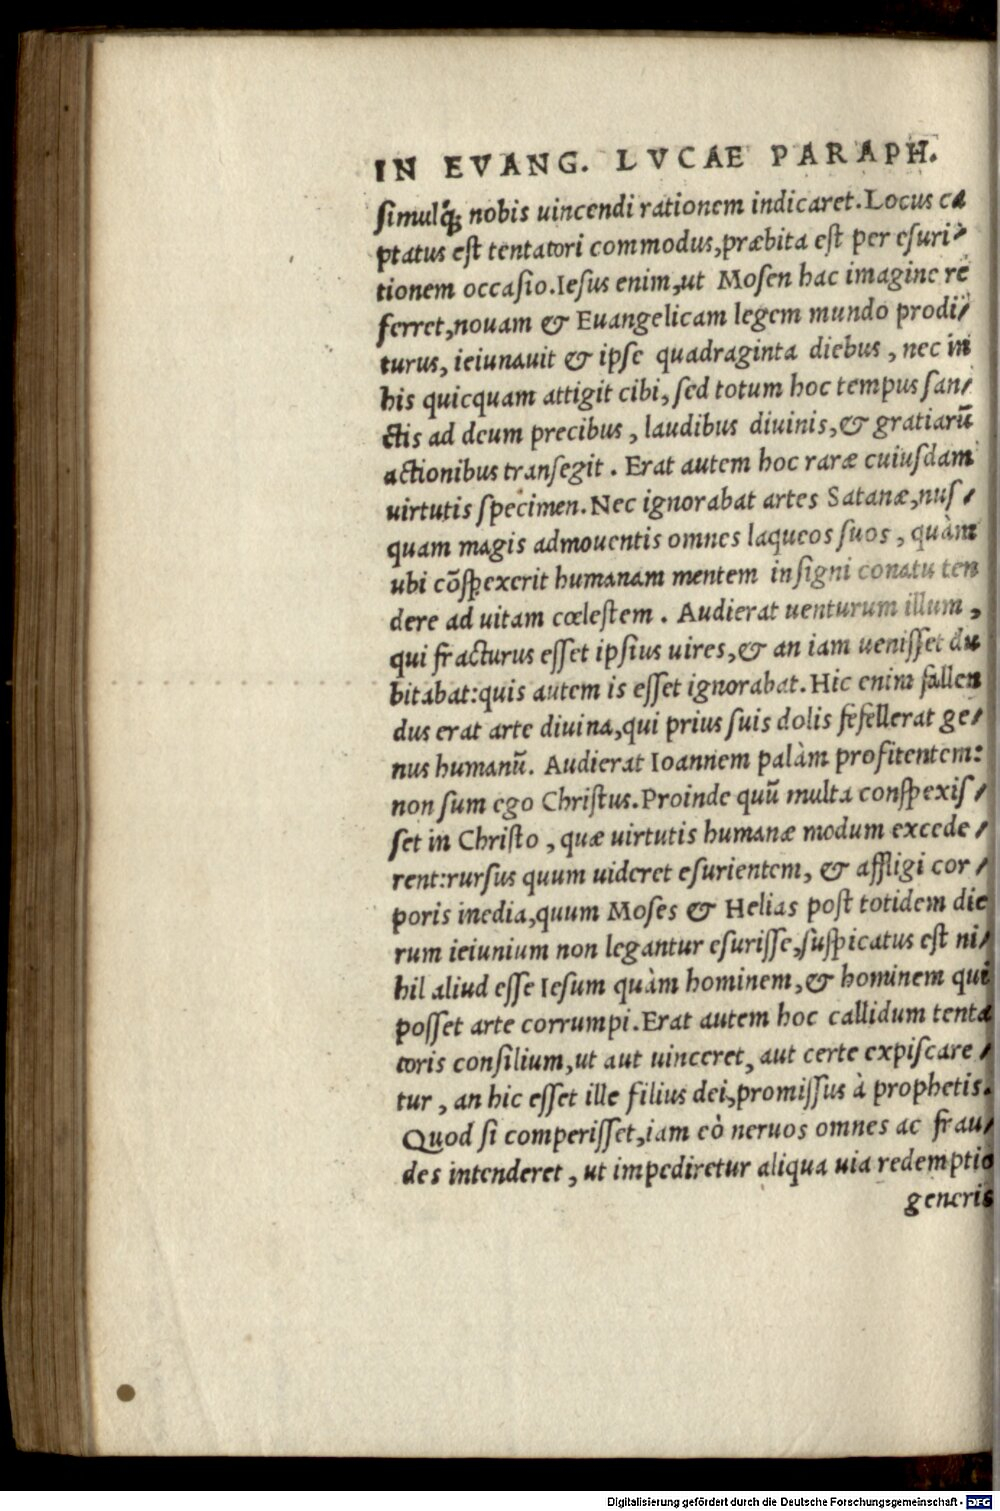 IN EVANG. LVCAE PARAPH.
simulq́; nobis uincendi rationem indicaret. Locus ca
ptatus est tentatori commodus, præbita est per esuri⸗
tionem occasio. Iesus enim, ut Mosen hac imagine re
ferret, nouam & Euangelicam legem mundo prodi⸗
turus, ieiunauit & ipse quadraginta diebus, nec in
his quicquam attigit cibi, sed totum hoc tempus san⸗
ctis ad deum precibus, laudibus diuinis, & gratiarũ
actionibus transegit. Erat autem hoc raræ cuiusdam
uirtutis specimen. Nec ignorabat artes Satanæ, nus⸗
quam magis admouentis omnes laqueos suos, quàm
ubi cõspexerit humanam mentem insigni conatu ten
dere ad uitam cœlestem. Audierat uenturum illum,
qui fracturus esset ipsius uires, & an iam uenisset du
bitabat: quis autem is esset ignorabat. Hic enim fallen
dus erat arte diuina, qui prius suis dolis fefellerat ge⸗
nus humanũ. Audierat Ioannem palàm profitentem:
non sum ego Christus. Proinde quũ multa conspexis⸗
set in Christo, quæ uirtutis humanæ modum excede⸗
rent: rursus quum uideret esurientem, & affligi cor⸗
poris inedia, quum Moses & Helias post totidem die
rum ieiunium non legantur esurisse, suspicatus est ni⸗
hil aliud esse Iesum quàm hominem, & hominem qui
posset arte corrumpi. Erat autem hoc callidum tenta
toris consilium, ut aut uinceret, aut certe expiscare⸗
tur, an hic esset ille filius dei, promissus à prophetis.
Quod si comperisset, iam eò neruos omnes ac frau⸗
des intenderet, ut impediretur aliqua uia redemptio
generis
Digitalisierung gefördert durch die Deutsche Forschungsgemeinschaft - DFG